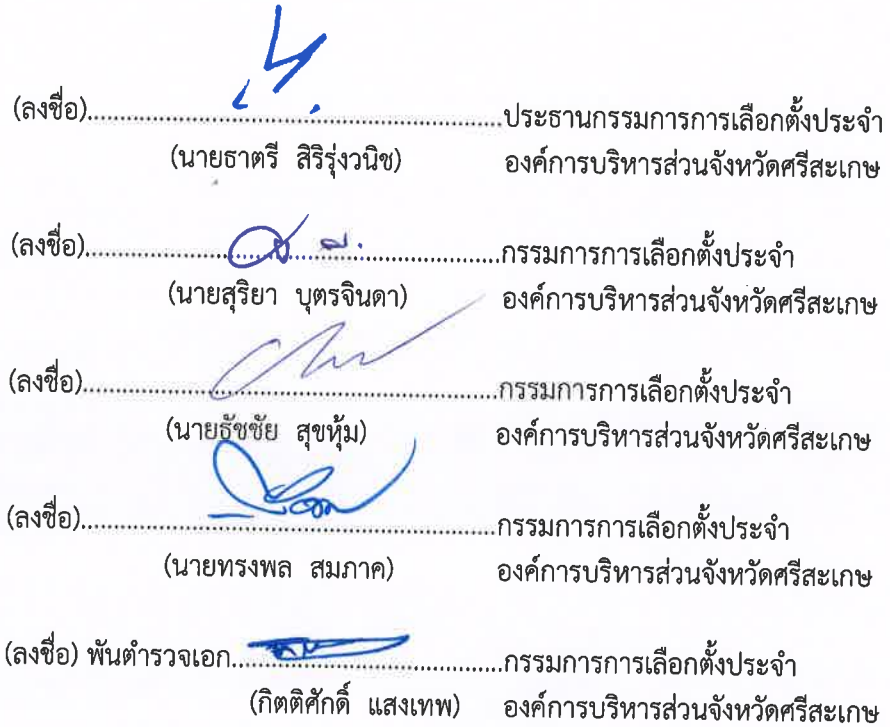 (ลงชื่อ)................................................................ประธานกรรมการการเลือกตั้งประจำ
(นายธาตรี สิริรุ่งวนิช) องค์การบริหารส่วนจังหวัดศรีสะเกษ
(ลงชื่อ)................................................................กรรมการการเลือกตั้งประจำ
(นายสุริยา บุตรจินดา) องค์การบริหารส่วนจังหวัดศรีสะเกษ
(ลงชื่อ)................................................................กรรมการการเลือกตั้งประจำ
(นายธัชชัย สุขหุ้ม) องค์การบริหารส่วนจังหวัดศรีสะเกษ
(ลงชื่อ)................................................................กรรมการการเลือกตั้งประจำ
(นายทรงพล สมภาค) องค์การบริหารส่วนจังหวัดศรีสะเกษ
(ลงชื่อ) พันตำรวจเอก..........................................กรรมการการเลือกตั้งประจำ
(กิตติศักดิ์ แสงเทพ) องค์การบริหารส่วนจังหวัดศรีสะเกษ